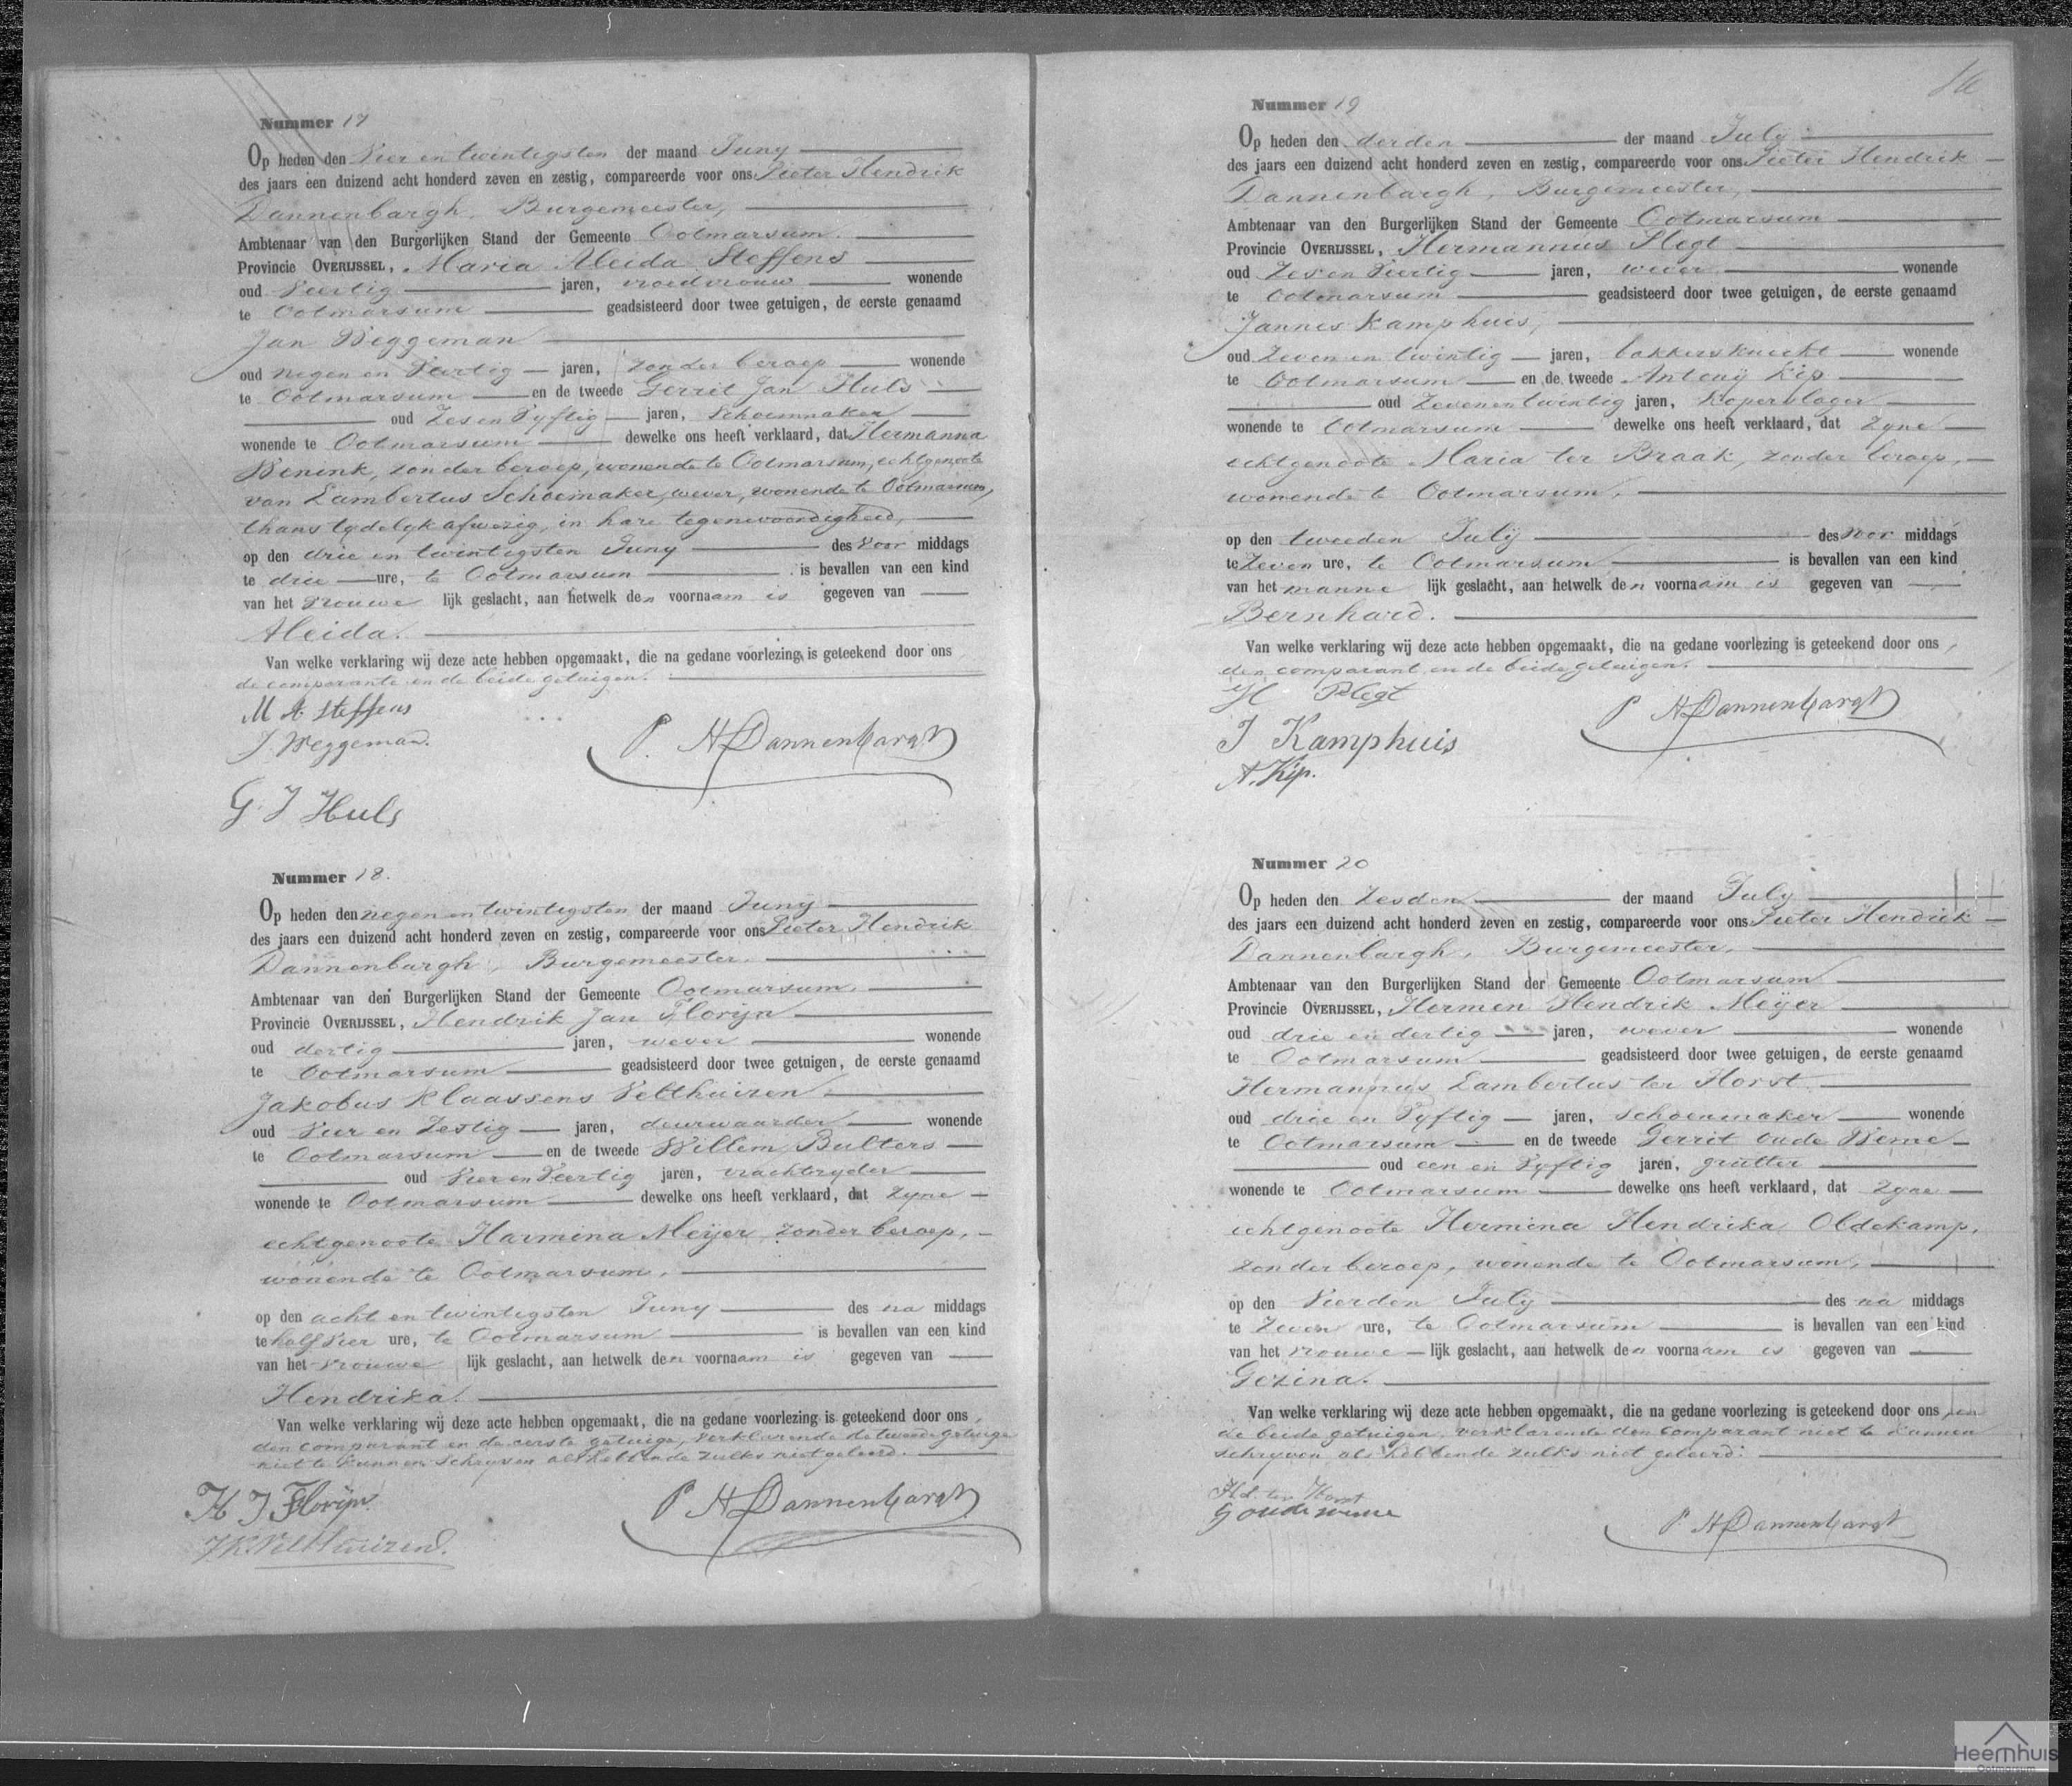 Nummer 17
Op heden den Vier en twintigsten der maand Juny
des jaars een duizend acht honderd zeven en zestig, compareerde voor ons Pieter Hendrik
Dannenbargh, Burgemeester,
Ambtenaar van den Burgerlijken Stand der Gemeente Ootmarsum.
Provincie OVERIJSSEL, Maria Aleida Steffens
oud Veertig jaren, vroedvrouw wonende
te Ootmarsum geadsisteerd door twee getuigen, de eerste genaamd
Jan Weggeman
oud negen en Veertig jaren, zonder beroep wonende
te Ootmarsum en de tweede Gerrit Jan Huls
oud Zes en Vyftig jaren, Schoenmaker
wonende te Ootmarsum dewelke ons heeft verklaard, dat Hermanna
Benink, zonder beroep, wonende te Ootmarsum, echtgenoote
van Lambertus Schoemaker, wever, wonende te Ootmarsum,
thans tydelyk afwezig, in hare tegenwoordigheid,
op den drie en twintigsten Juny des voor middags
te drie ure, te Ootmarsum is bevallen van een kind
van het vrouwe lijk geslacht, aan hetwelk den voornaam is gegeven van
Aleida.
Van welke verklaring wij deze acte hebben opgemaakt, die na gedane voorlezing is geteekend door ons,
de comparante en de beide getuigen.
M A Steffens
J. Weggeman.
P. H Dannenbargh
G. J Huls
Nummer 18.
Op heden den negen en twintigsten der maand Juny
des jaars een duizend acht honderd zeven en zestig, compareerde voor ons Pieter Hendrik
Dannenburgh, Burgemeester.
Ambtenaar van den Burgerlijken Stand der Gemeente Ootmarsum.
Provincie OVERIJSSEL, Hendrik Jan Florijn
oud dertig jaren, wever wonende
te Ootmarsum geadsisteerd door twee getuigen, de eerste genaamd
Jakobus Klaassens Velthuizen
oud Vier en Zestig jaren, deurwaarder wonende
te Ootmarsum en de tweede Willem Bulters
oud Vier en Veertig jaren, vrachtryder
wonende te Ootmarsum dewelke ons heeft verklaard, dat zyne
echtgenoote Harmina Meijer, zonder beroep,
wonende te Ootmarsum,
op den acht en twintigsten Juny des na middags
te half Vier ure, te Ootmarsum is bevallen van een kind
van het vrouwe lijk geslacht, aan hetwelk den voornaam is gegeven van
Hendrika.
Van welke verklaring wij deze acte hebben opgemaakt, die na gedane voorlezing is geteekend door ons,
den comparant en de eerste getuige, verklarende de tweede getuige
niet te kunnen schryven als hebbende zulks niet geleerd.
H J Florijn
P H Dannenbargh
J K Velthuizen.
Nummer 19
Op heden den derden der maand July
des jaars een duizend acht honderd zeven en zestig, compareerde voor ons Pieter Hendrik
Dannenbargh, Burgemeester,
Ambtenaar van den Burgerlijken Stand der Gemeente Ootmarsum
Provincie OVERIJSSEL, Hermannus Plegt
oud Zes en Veertig jaren, wever wonende
te Ootmarsum geadsisteerd door twee getuigen, de eerste genaamd
Jannes Kamphuis,
oud Zeven en twintig jaren, bakkersknecht wonende
te Ootmarsum en de tweede Antony Kip
oud Zeven en twintig jaren, Koperslager
wonende te Ootmarsum dewelke ons heeft verklaard, dat zyne
echtgenoote Maria ter Braak, zonder beroep,
wonende te Ootmarsum,
op den tweeden July des voor middags
te Zeven ure, te Ootmarsum is bevallen van een kind
van het manne lijk geslacht, aan hetwelk den voornaam is gegeven van
Bernhard.
Van welke verklaring wij deze acte hebben opgemaakt, die na gedane voorlezing is geteekend door ons,
den comparant en de beide getuigen.
H Plegt
P H Dannenbargh
J Kamphuis
A. Kip.
Nummer 20
Op heden den Zesden der maand July
des jaars een duizend acht honderd zeven en zestig, compareerde voor ons Pieter Hendrik
Dannenbargh, Burgemeester,
Ambtenaar van den Burgerlijken Stand der Gemeente Ootmarsum
Provincie OVERIJSSEL, Hermen Hendrik Meijer
oud drie en dertig jaren, wever wonende
te Ootmarsum geadsisteerd door twee getuigen, de eerste genaamd
Hermannus Lambertus ter Horst
oud drie en Vyftig jaren, schoenmaker wonende
te Ootmarsum en de tweede Gerrit Oude Weme
oud een en Vyftig jaren, grutter
wonende te Ootmarsum dewelke ons heeft verklaard, dat zyne
echtgenoote Hermina Hendrika Oldekamp,
zonder beroep, wonende te Ootmarsum,
op den Vierden July des na middags
te Zeven ure, te Ootmarsum is bevallen van een kind
van het vrouwe lijk geslacht, aan hetwelk den voornaam is gegeven van
Gezina.
Van welke verklaring wij deze acte hebben opgemaakt, die na gedane voorlezing is geteekend door ons, en
de beide getuigen, verklarende den comparant niet te kunnen
schryven als hebbende zulks niet geleerd.
H L ter Horst
G oude weme
P. H Dannenbargh
Heemhuis
Ootmarsum